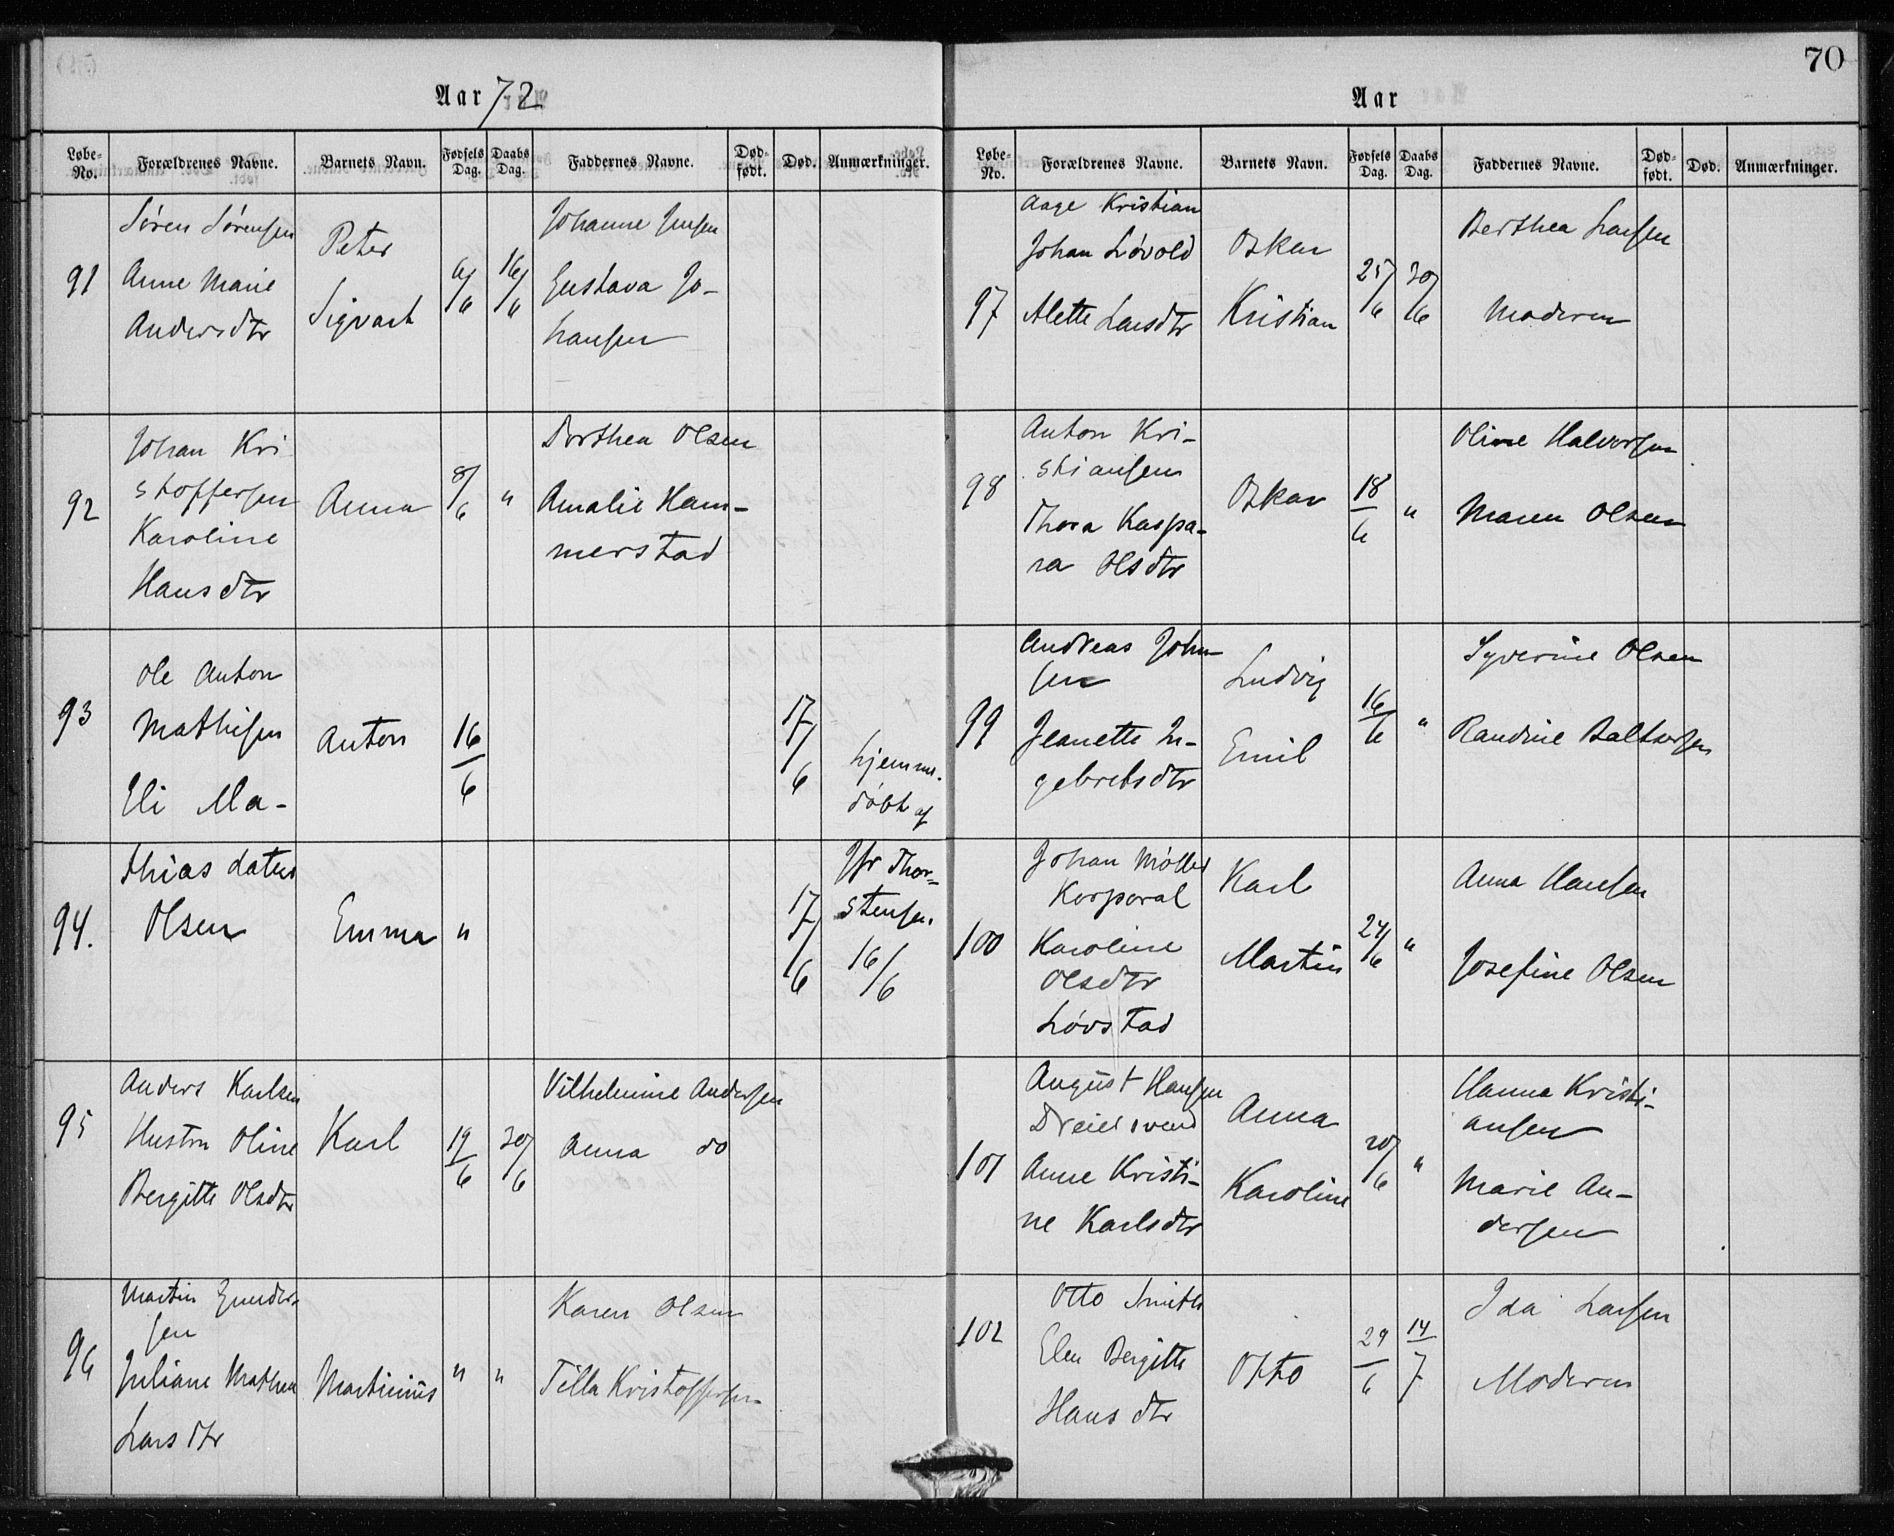 Aar 72
Løbe-No. Forældrenes Navne. Barnets Navn. Fødsels Dag. Daabs Dag. Faddernes Navne. Død-født. Død. Anmærkninger.
91
Søren Sørensen
Anne Marie
Andersdtr
Peter
Sigvart
6/6
16/6
Johanne Jensen
Gustava Jo-
hansen
92
Johan Kri
stoffersen
Karoline
Hansdtr
Anna
8/6
"
Dorthea Olsen
Amalie Ham-
merstad
93
Ole Anton
Mathisen
Eli Ma-
Anton
16/6
17/6
hjemme-
døbt af
94.
thias datter
Olsen
Emma
"
17/6
Jfr Thor-
stensen.
16/6
95
Anders Karlsen
Hustru Oline
Bergitte Olsdtr
Karl
19/6
30/6
Vilhelmine Andersen
Anna do
96
Martin Gunder-
sen
Juliane Mathea
Larsdtr
Martinius
"
"
Karen Olsen
Tilla Kristoffersen
70
Aar
Løbe-No. Forældrenes Navne. Barnets Navn. Fødsels Dag. Daabs Dag. Faddernes Navne. Død-født. Død. Anmærkninger.
97
Aage Kristian
Johan Løvold
Alette Larsdtr
Oskar
Kristian
25/6
30/6
Berthea Larsen
Moderen
98
Anton Kri-
stiansen
Thora Kaspa-
ra Olsdtr
Oskar
18/6
"
Oline Halvorsen
Maren Olsen
99
Andreas John
sen
Jeanette In-
gebretsdtr
Ludvig
Emil
16/6
"
Syverine Olsen
Randine Baltsersen
100
Johan Møller
Korporal
Karoline
Olsdtr
Løvstad
Karl
Martin
24/6
"
Anna Hansen
Josefine Olsen
101
August Hansen
Dreiersvend
Anne Kristi-
ne Karlsdtr
Anna
Karoline
20/6
"
Hanna Kristi-
ansen
Marie An-
dersen
102
Otto Smith
Elen Bergitte
Hansdtr
Otto
29/6
14/7
Ida Larsen
Moderen